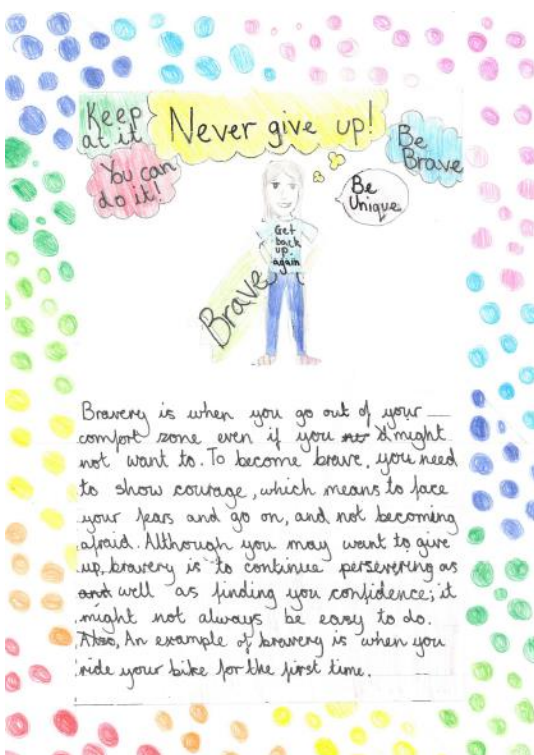 Keep
at it
Never give up!
You can
do it!
Be
Brave
Be
Unique
Get
back
up
again
Brave
Bravery is when you go out of your
comfort zone even if you might
not want to. To become brave, you need
to show courage, which means to face
your fears and go on, and not becoming
afraid. Although you may want to give
up, bravery is to continue persevering as
and well as finding you confidence; it
might not always be easy to do.
Also, An example of bravery is when you
ride your bike for the first time.